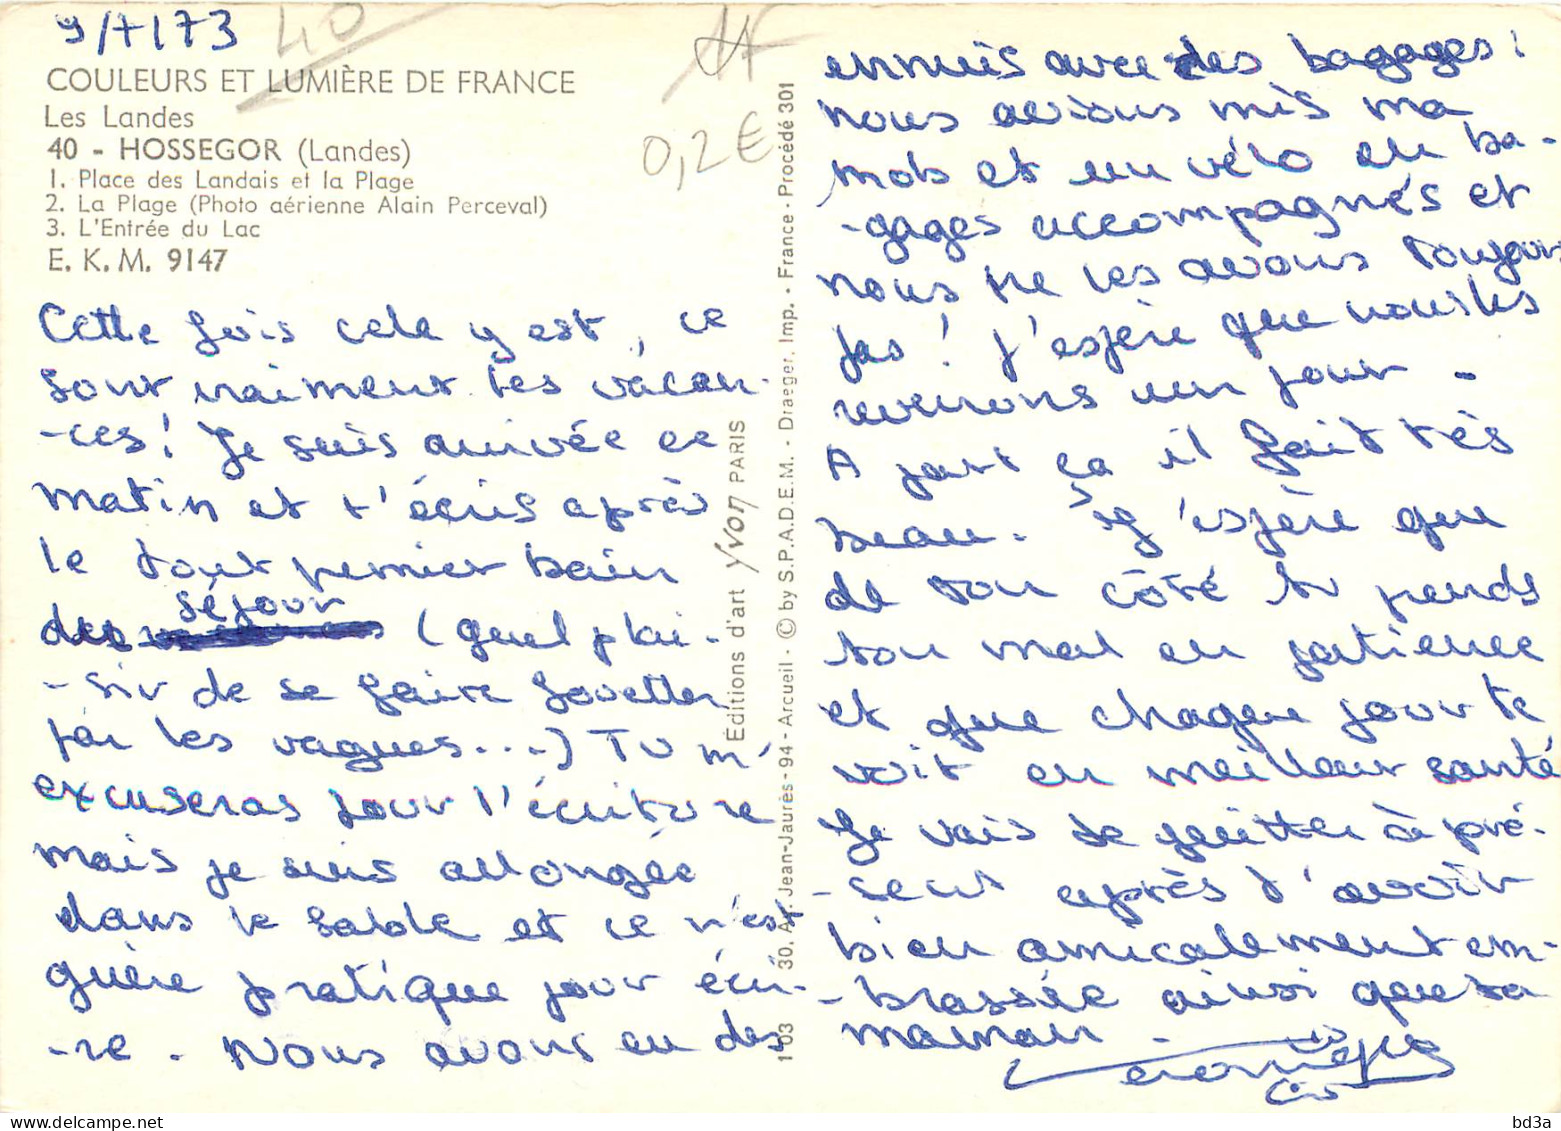 9/7/73
40
0,2€
COULEURS ET LUMIÈRE DE FRANCE
Les Landes
40 - HOSSEGOR (Landes)
1. Place des Landais et la Plage
2. La Plage (Photo aérienne Alain Perceval)
3. L'Entrée du Lac
E. K. M. 9147
Cette fois cela y est, ce
sont vraiment les vacan-
-ces! Je suis arrivée ce
matin et t'écris après
le tout premier bain
séjour
des (quel plai-
-sir de se faire fouetter
par les vagues...) Tu m'
excuseras pour l'écriture
mais je suis allongée
dans le sable et ce n'est
guère pratique pour écri-
-re. Nous avons eu des
Éditions d'art YVON PARIS
1 03 30, Av. Jean-Jaurès - 94 - Arcueil - © by S.P.A.D.E.M. - Draeger, Imp. - France - Procédé 301
ennuis avec des bagages!
nous avions mis ma
mob et un vélo en ba-
-gages accompagnés et
nous ne les avons toujours
pas! J'espère que nous les
reverrons un jour -
A part ça il fait très
beau. J'espère que
de ton côté tu prends
ton mal en patience
et que chaque jour te
voit en meilleur santé
Je vais te quitter à pré-
-sent après t'avoir
bien amicalement em-
-brassée ainsi que ta
maman.